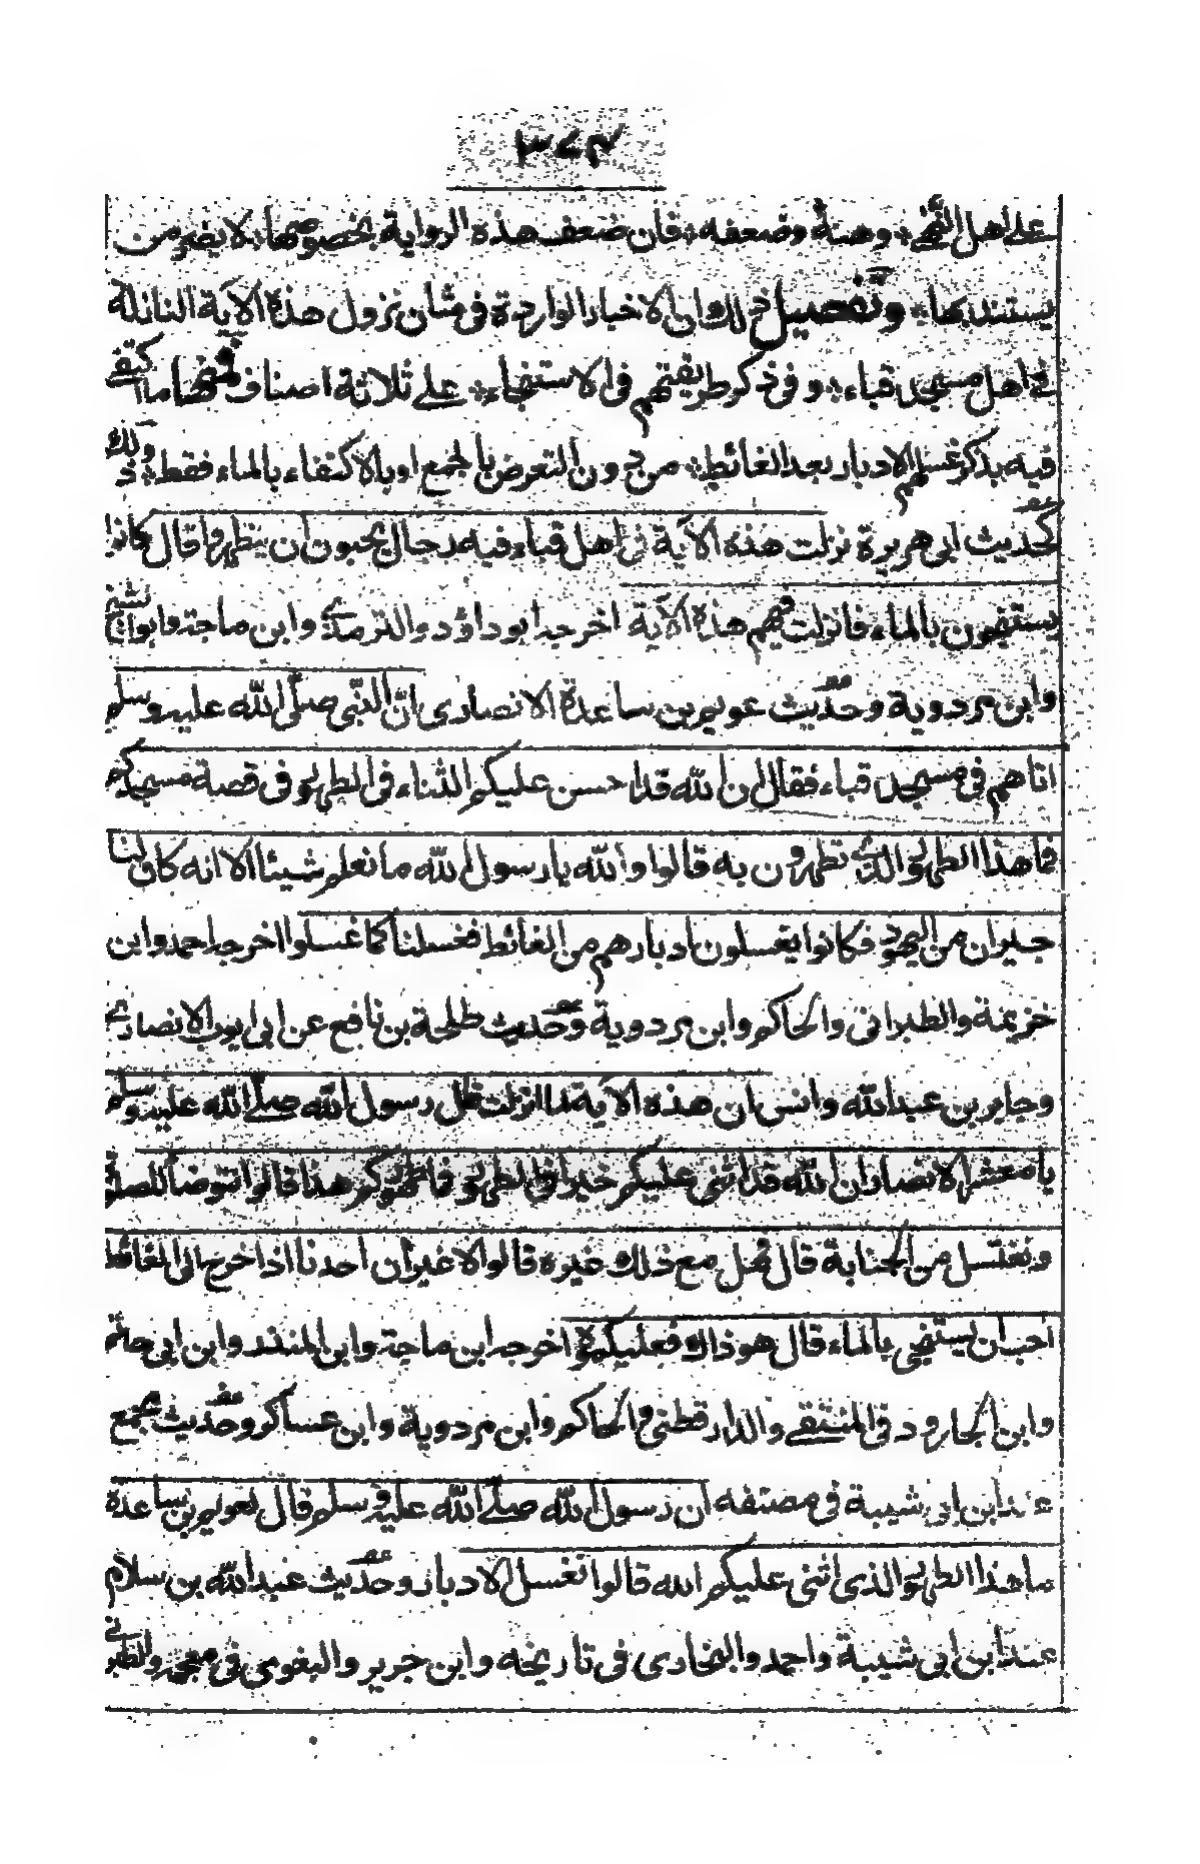 ٣٧٣
على اهل النهى ٭ وهنه وضعفه ٭ فان ضعف هذه الرواية بخصوصها ٭ لا يضر من
يستند بها ٭ وتفصيل ذلك ان الاخبار الواردة فى شان نزول هذه الاية النازلة
فى اهل مسجد قباء ٭ وفى ذكر طريقتهم فى الاستنجاء ٭ على ثلاثة اصناف فمنها ما اكتفى
فيه بذكر غسلهم الادبار بعد الغائط ٭ من دون التعرض بالجمع او بالاكتفاء بالماء فقط ٭ وذلك
كحديث ابى هريرة نزلت هذه الاية فى اهل قباء فيه رجال يحبون ان يتطهروا قال كانوا
يستنجون بالماء فانزلت فيهم هذه الاية اخرجه ابو داؤد والترمذى وابن ماجة وابو الشيخ
وابن مردوية وحديث عويم بن ساعدة الانصارى ان النبى صلى الله عليه وسلم
اتاهم فى مسجد قباء فقال ان الله قد احسن عليكم الثناء فى الطهور فى قصة مسجدكم
فما هذا الطهور الذى تطهرون به قالوا والله يا رسول الله ما نعلم شيئا الا انه كان لنا
جيران من اليهود فكانوا يغسلون ادبارهم من الغائط فغسلنا كما غسلوا اخرجه احمد وابن
خزيمة والطبرانى والحاكم وابن مردوية وحديث طلحة بن نافع عن ابى ايوب الانصارى
وجابر بن عبد الله وانس ان هذه الاية لما نزلت قال رسول الله صلى الله عليه وسلم
يا معشر الانصار ان الله قد اثنى عليكم خيرا فى الطهور فما طهوركم هذا قالوا نتوضأ للصلوة
ونغتسل من الجنابة قال فهل مع ذلك غيره قالوا لا غير ان احدنا اذا خرج الى الغائط
احب ان يستنجى بالماء قال هو ذاك فعليكموه اخرجه ابن ماجة وابن المنذر وابن ابى حاتم
وابن الجارود فى المنتقى والدارقطنى والحاكم وابن مردوية وابن عساكر وحديث مجمع
عند ابن ابى شيبة فى مصنفه ان رسول الله صلى الله عليه وسلم قال لعويم بن ساعدة
ما هذا الطهور الذى اثنى عليكم الله قالوا نغسل الادبار وحديث عبد الله بن سلام
عند ابن ابى شيبة واحمد والبخارى فى تاريخه وابن جرير والبغوى فى معجمه والطبرانى